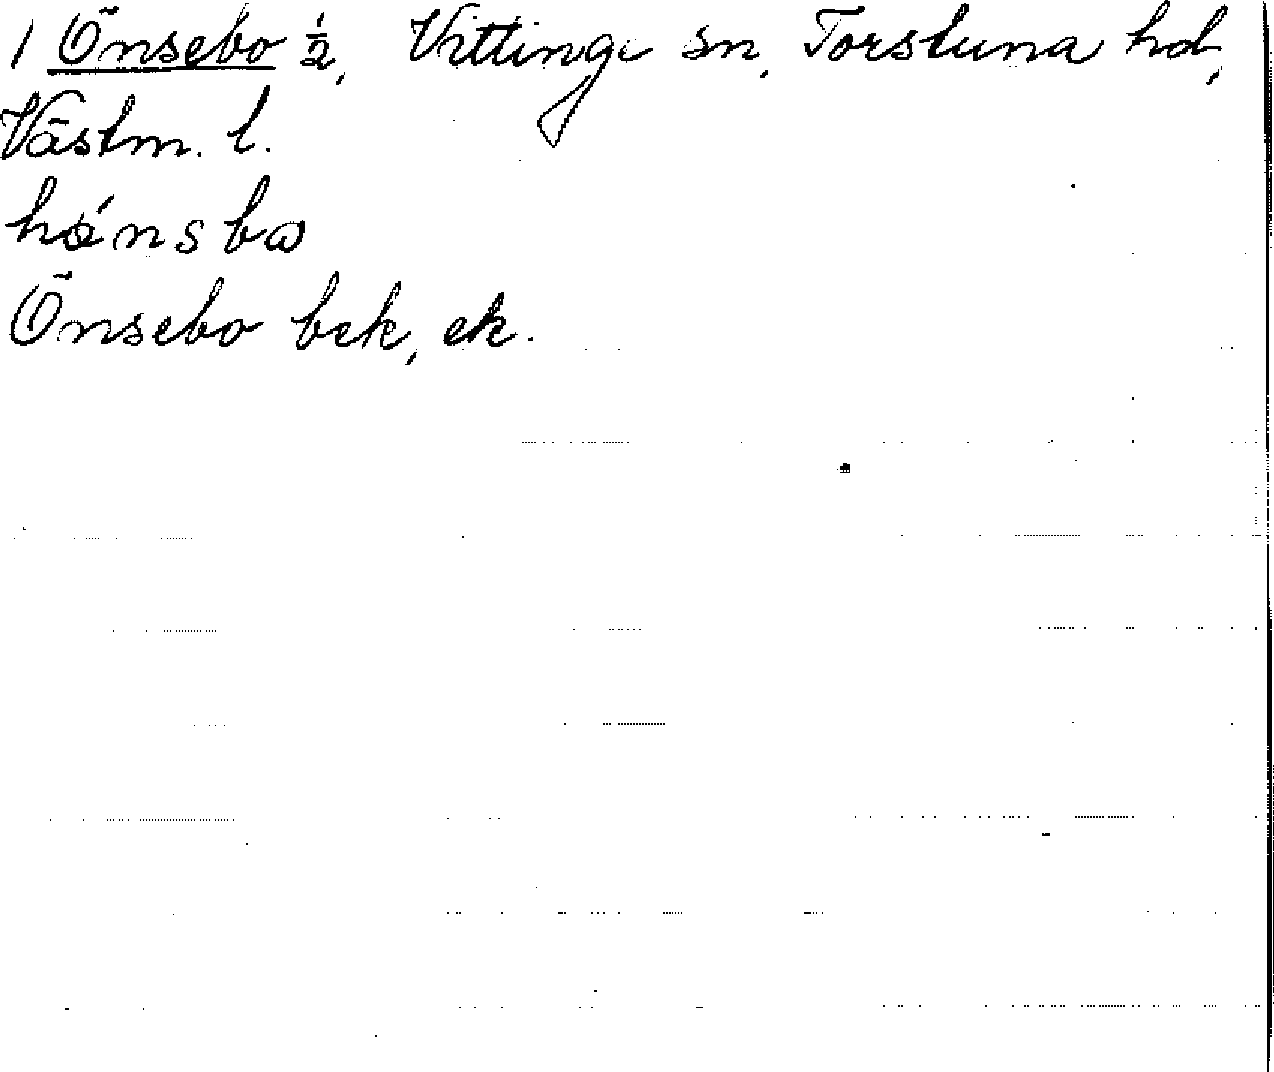 1 Önsebo 1/2, Vittinge sn, Torstuna hd,
Västm. l.
hö́nsbω
Önsebo bek, ek.